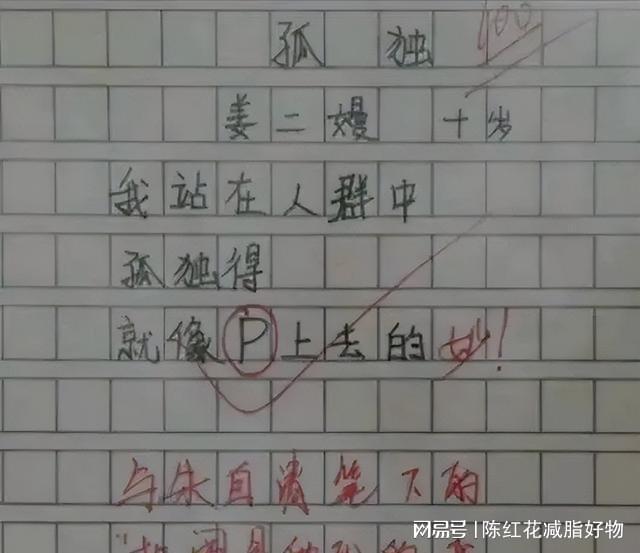 孤独 100
姜二嫚 十岁
我站在人群中
孤独得
就像P上去的 妙!
与朱自清笔下的
搜狐号|陈红花减脂好物